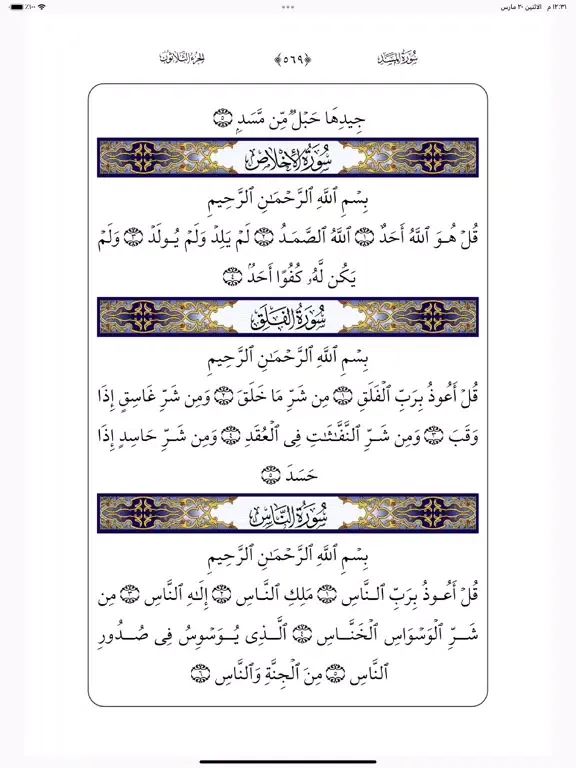 ١٢:٣١ م الاثنين ٢٠ مارس
١٠٠٪
سُورَةُ المَسَد
﴿٥٦٩﴾
الجزء الثلاثون
جِيدِهَا حَبۡلٞ مِّن مَّسَدِۭ ۝٥
سُورَةُ الإِخۡلَاصِ
بِسۡمِ ٱللَّهِ ٱلرَّحۡمَٰنِ ٱلرَّحِيمِ
قُلۡ هُوَ ٱللَّهُ أَحَدٌ ۝١ ٱللَّهُ ٱلصَّمَدُ ۝٢ لَمۡ يَلِدۡ وَلَمۡ يُولَدۡ ۝٣ وَلَمۡ
يَكُن لَّهُۥ كُفُوًا أَحَدُۢ ۝٤
سُورَةُ الفَلَقِ
بِسۡمِ ٱللَّهِ ٱلرَّحۡمَٰنِ ٱلرَّحِيمِ
قُلۡ أَعُوذُ بِرَبِّ ٱلۡفَلَقِ ۝١ مِن شَرِّ مَا خَلَقَ ۝٢ وَمِن شَرِّ غَاسِقٍ إِذَا
وَقَبَ ۝٣ وَمِن شَرِّ ٱلنَّفَّٰثَٰتِ فِي ٱلۡعُقَدِ ۝٤ وَمِن شَرِّ حَاسِدٍ إِذَا
حَسَدَ ۝٥
سُورَةُ النَّاسِ
بِسۡمِ ٱللَّهِ ٱلرَّحۡمَٰنِ ٱلرَّحِيمِ
قُلۡ أَعُوذُ بِرَبِّ ٱلنَّاسِ ۝١ مَلِكِ ٱلنَّاسِ ۝٢ إِلَٰهِ ٱلنَّاسِ ۝٣ مِن
شَرِّ ٱلۡوَسۡوَاسِ ٱلۡخَنَّاسِ ۝٤ ٱلَّذِي يُوَسۡوِسُ فِي صُدُورِ
ٱلنَّاسِ ۝٥ مِنَ ٱلۡجِنَّةِ وَٱلنَّاسِ ۝٦